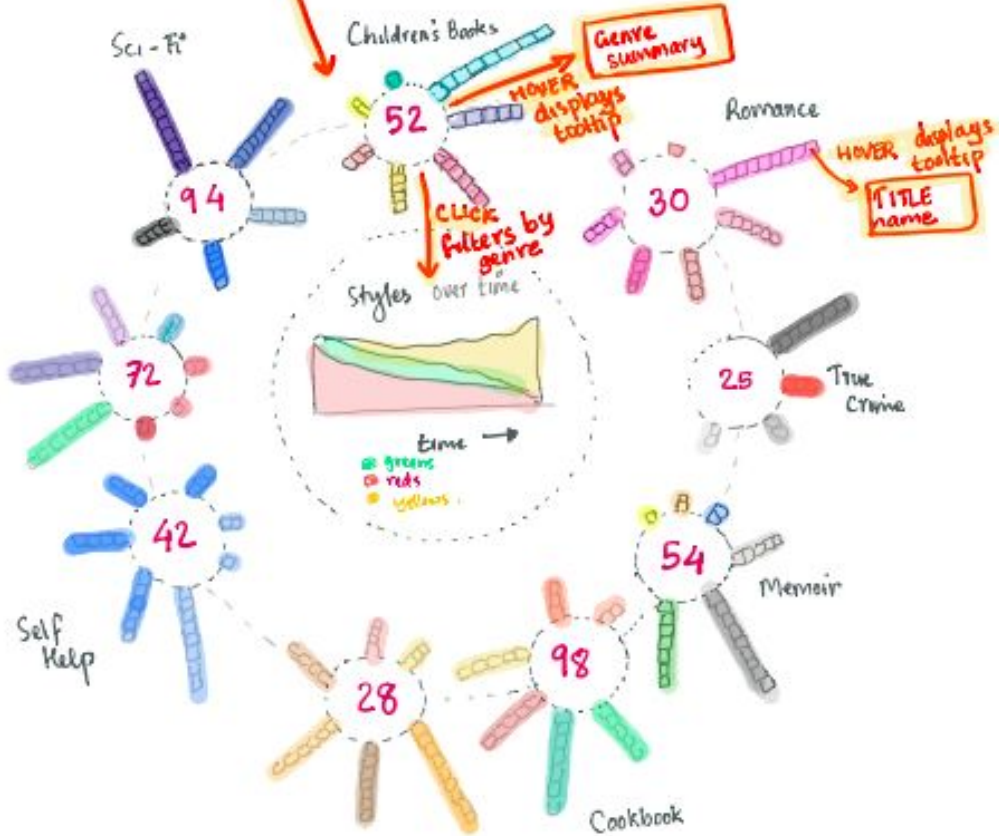 Sci-Fi
Children's Books
Genre
summary
HOVER
displays
tooltip
Romance
HOVER displays
tooltip
TITLE
name
94
52
30
CLICK
filters by
genre
Styles over time
72
25
True
Crime
time →
greens
reds
yellows.
42
54
Memoir
Self
Help
98
28
Cookbook